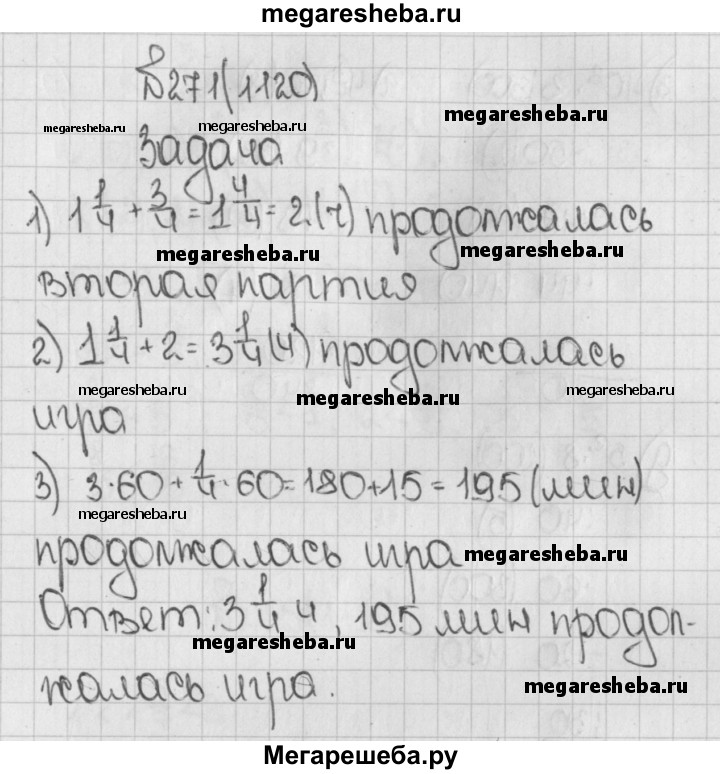 megaresheba.ru
№271(1120)
megaresheba.ru megaresheba.ru megaresheba.ru
Задача
1) 1 1/4 + 3/4 = 1 4/4 = 2 (ч) продолжалась
megaresheba.ru megaresheba.ru
вторая партия
2) 1 1/4 + 2 = 3 1/4 (ч) продолжалась
megaresheba.ru megaresheba.ru megaresheba.ru
игра
3) 3·60 + 1/4·60 = 180+15 = 195 (мин)
megaresheba.ru
продолжалась игра megaresheba.ru
Ответ: 3 1/4 ч, 195 мин продол-
megaresheba.ru
жалась игра. megaresheba.ru
Мегарешеба.ру